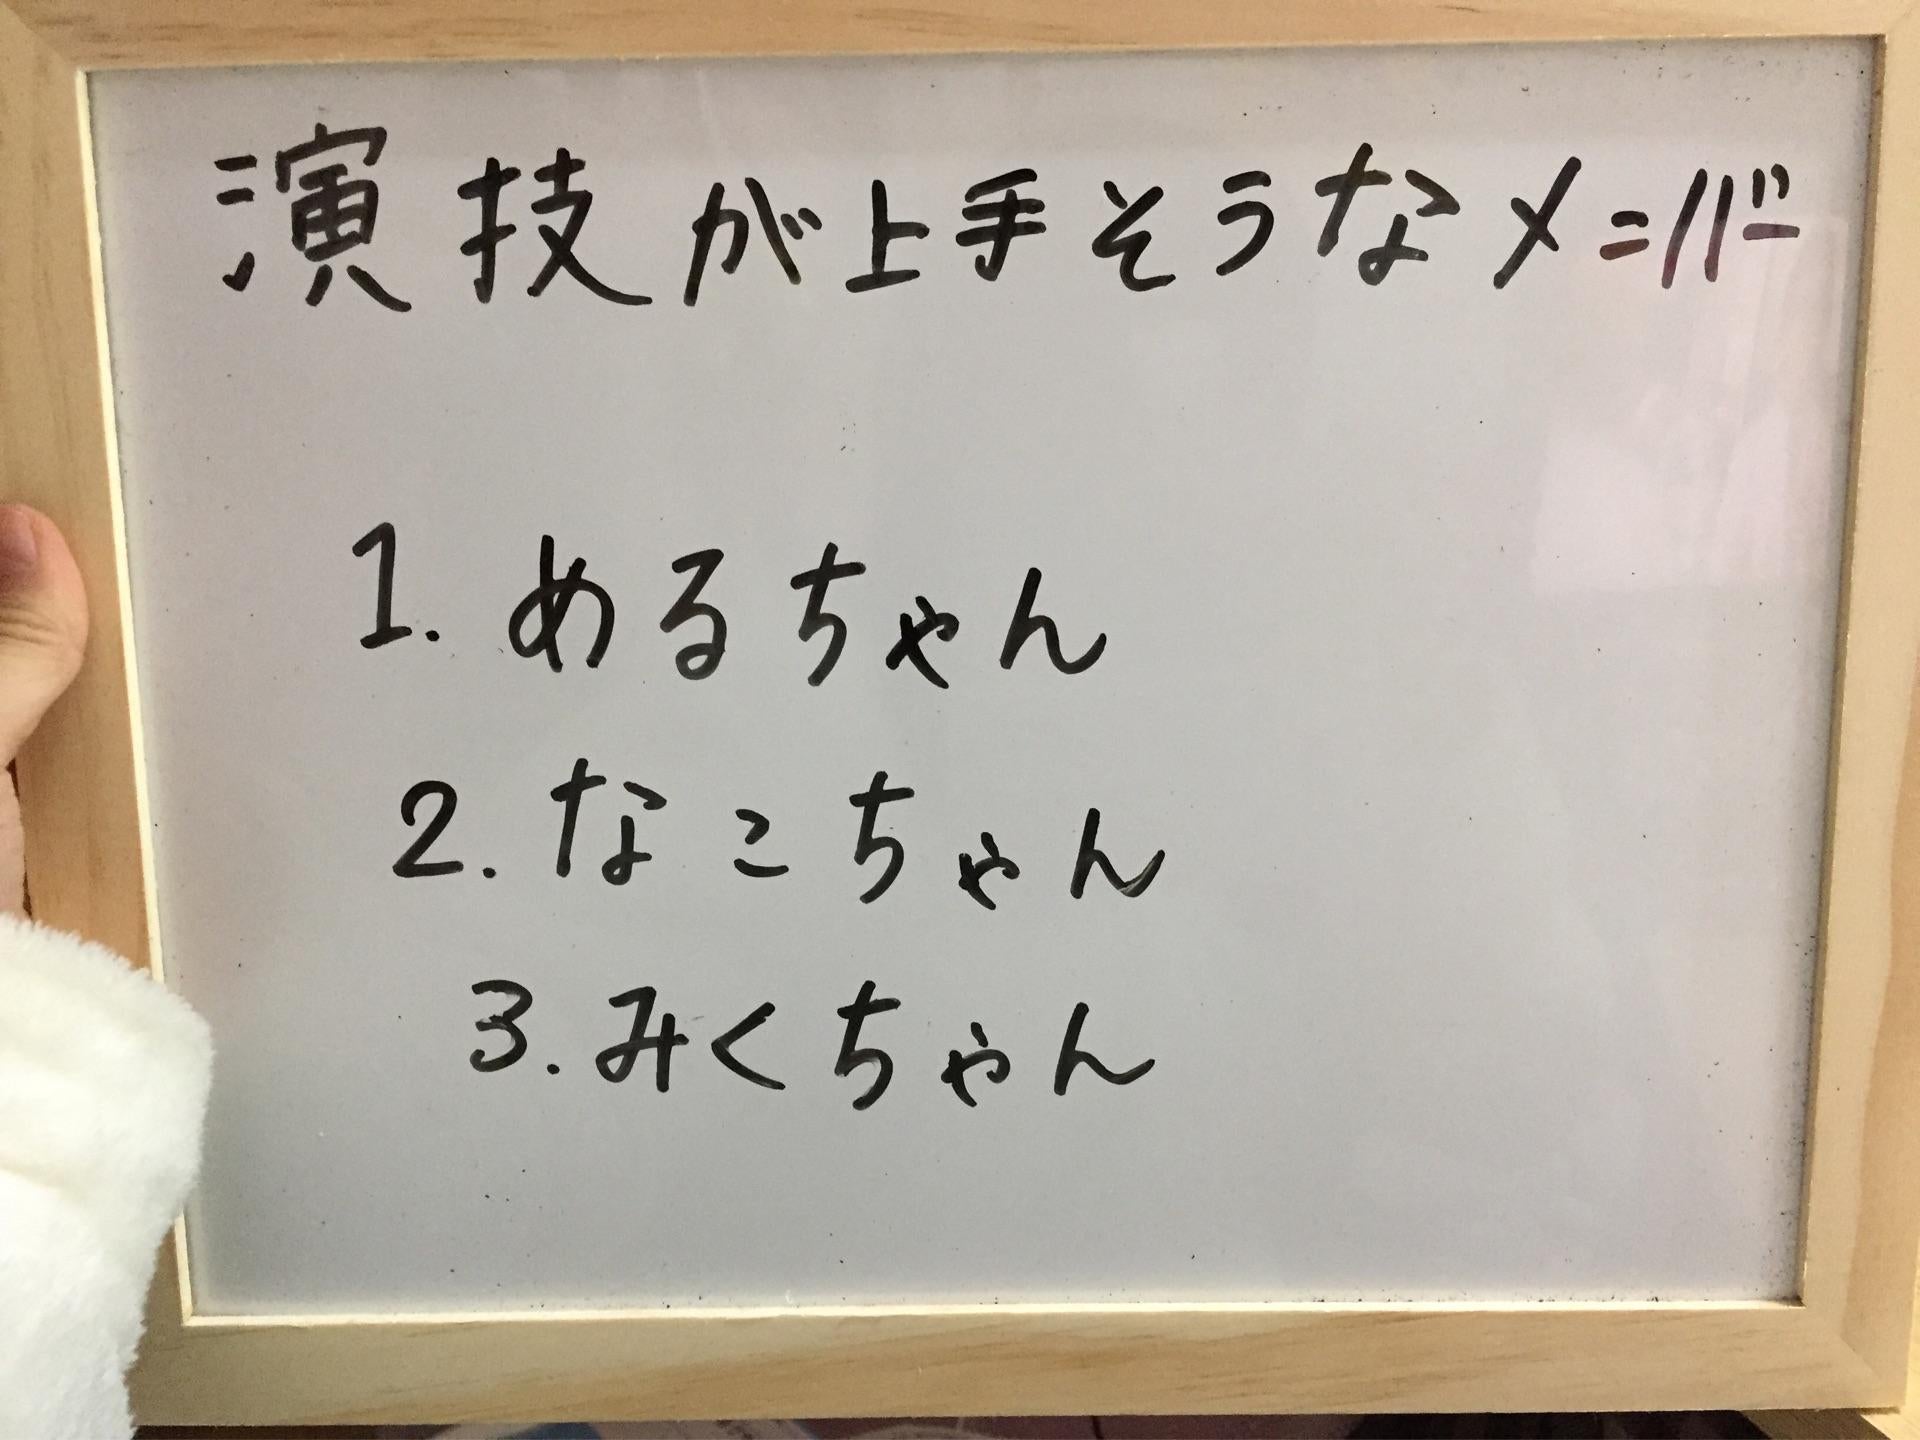 演技が上手そうなメンバー
1. めるちゃん
2. なこちゃん
3. みくちゃん